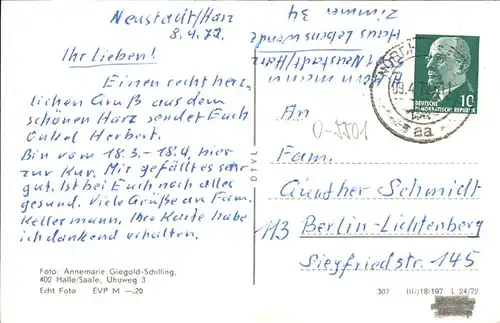 Neustadt/Harz
8.4.72
Ihr Lieben!
Einen recht herz,
lichen Gruß aus dem
schönen Harz sendet Euch
Onkel Herbert.
Bin vom 18.3.-18.4. hier
zur Kur. Mir gefällt es sehr
gut. Ist bei Euch noch alles
gesund. Viele Grüße an Fam.
Kellermann, Ihre Karte habe
ich dankend erhalten.
Foto: Annemarie Giegold-Schilling,
402 Halle/Saale, Uhuweg 3
Echt Foto EVP M —,20
DTVL
Neustadt/Harz
Haus Lebenswende
Zimmer 34
DEUTSCHE
DEMOKRATISCHE REPUBLIK
10
aa
0-5501
An
Fam.
Günther Schmidt
113 Berlin-Lichtenberg
Siegfriedstr. 145
307 III/18/197 L 24/72